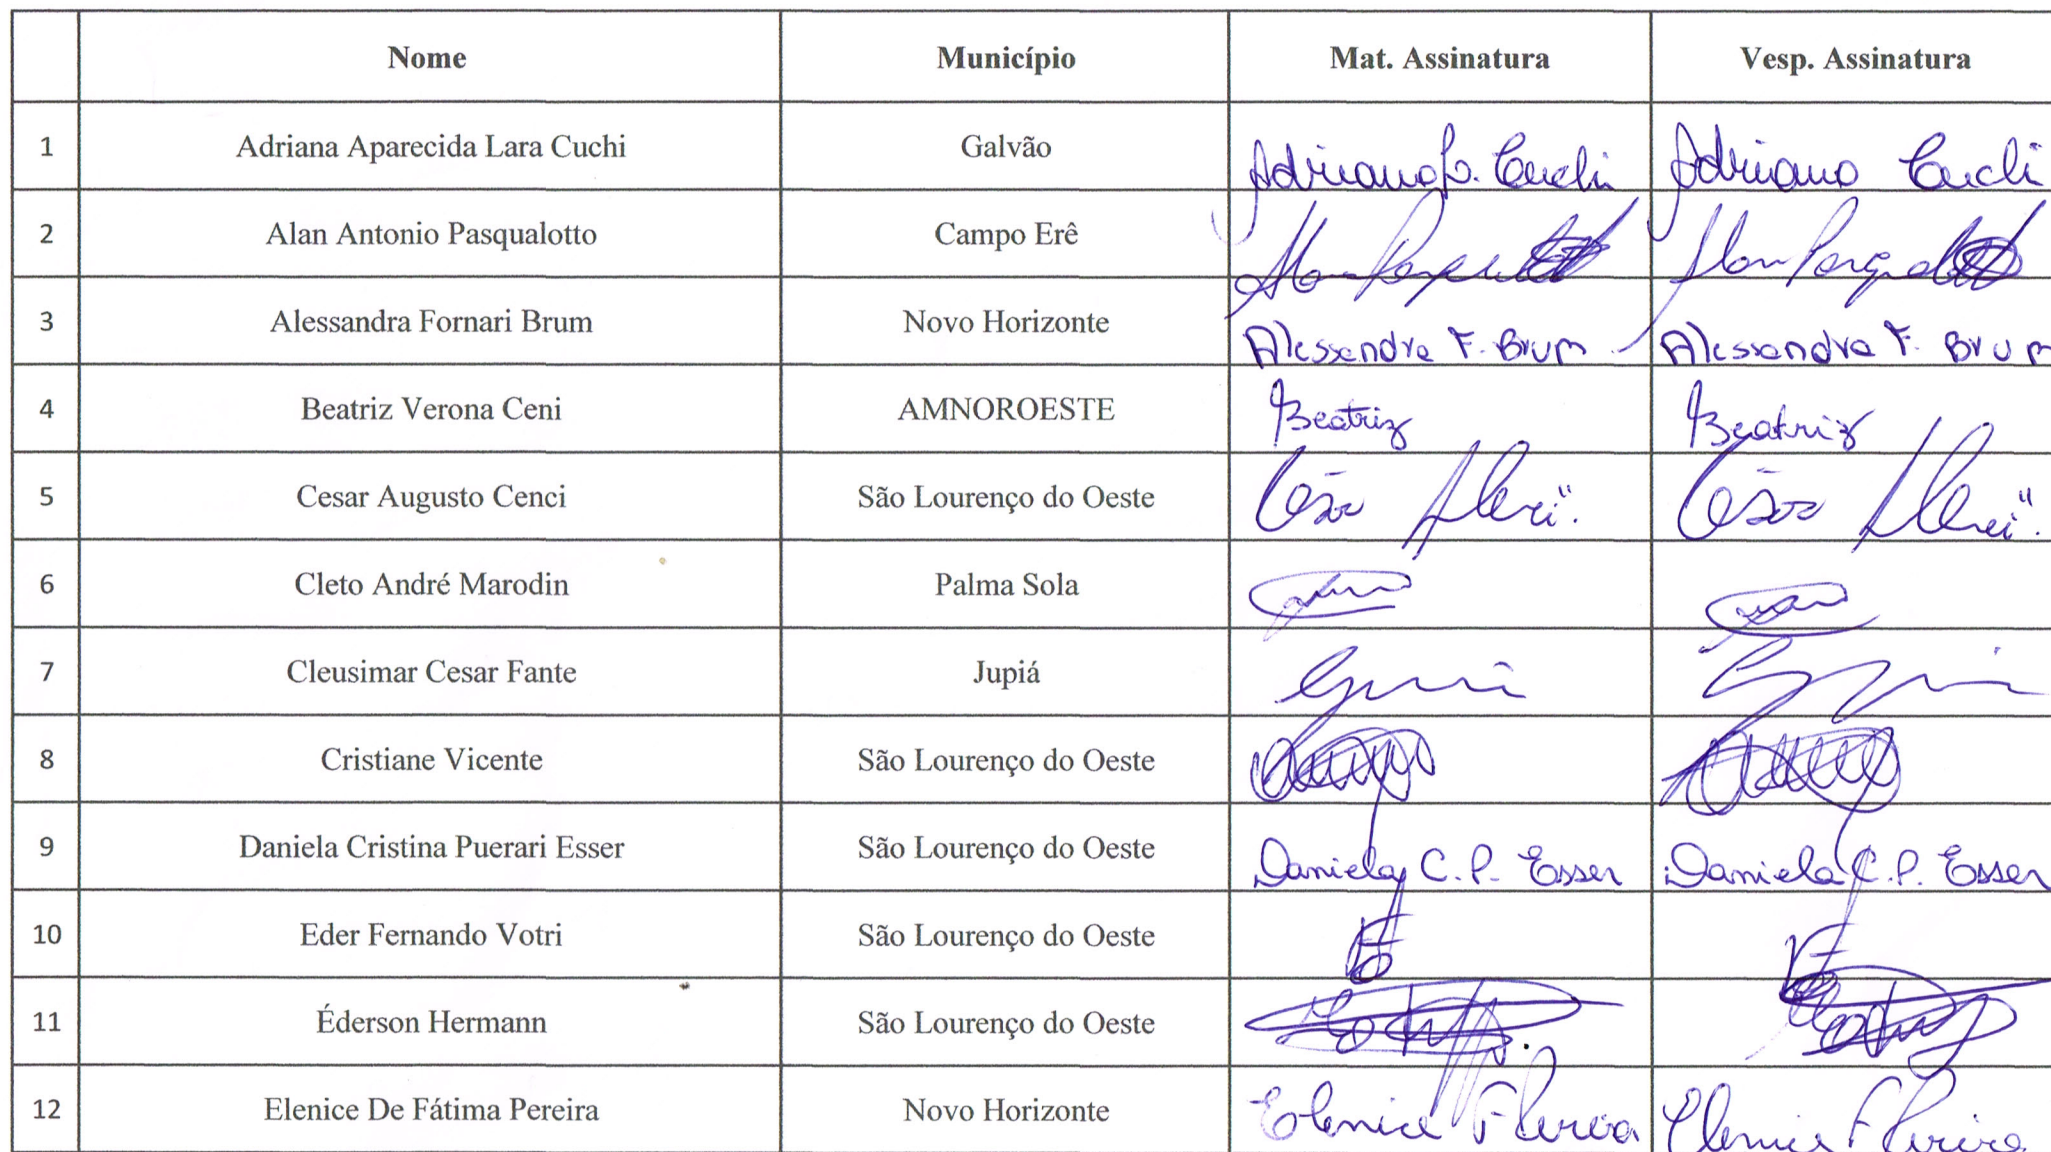 Nome Município Mat. Assinatura Vesp. Assinatura
1 Adriana Aparecida Lara Cuchi Galvão Adriana L. Cuchi Adriana Cuchi
2 Alan Antonio Pasqualotto Campo Erê
3 Alessandra Fornari Brum Novo Horizonte Alessandra F. Brum Alessandra F. Brum
4 Beatriz Verona Ceni AMNOROESTE Beatriz Beatriz
5 Cesar Augusto Cenci São Lourenço do Oeste
6 Cleto André Marodin Palma Sola
7 Cleusimar Cesar Fante Jupiá
8 Cristiane Vicente São Lourenço do Oeste
9 Daniela Cristina Puerari Esser São Lourenço do Oeste Daniela C. P. Esser Daniela C. P. Esser
10 Eder Fernando Votri São Lourenço do Oeste
11 Éderson Hermann São Lourenço do Oeste
12 Elenice De Fátima Pereira Novo Horizonte Elenice F Pereira Elenice F Pereira